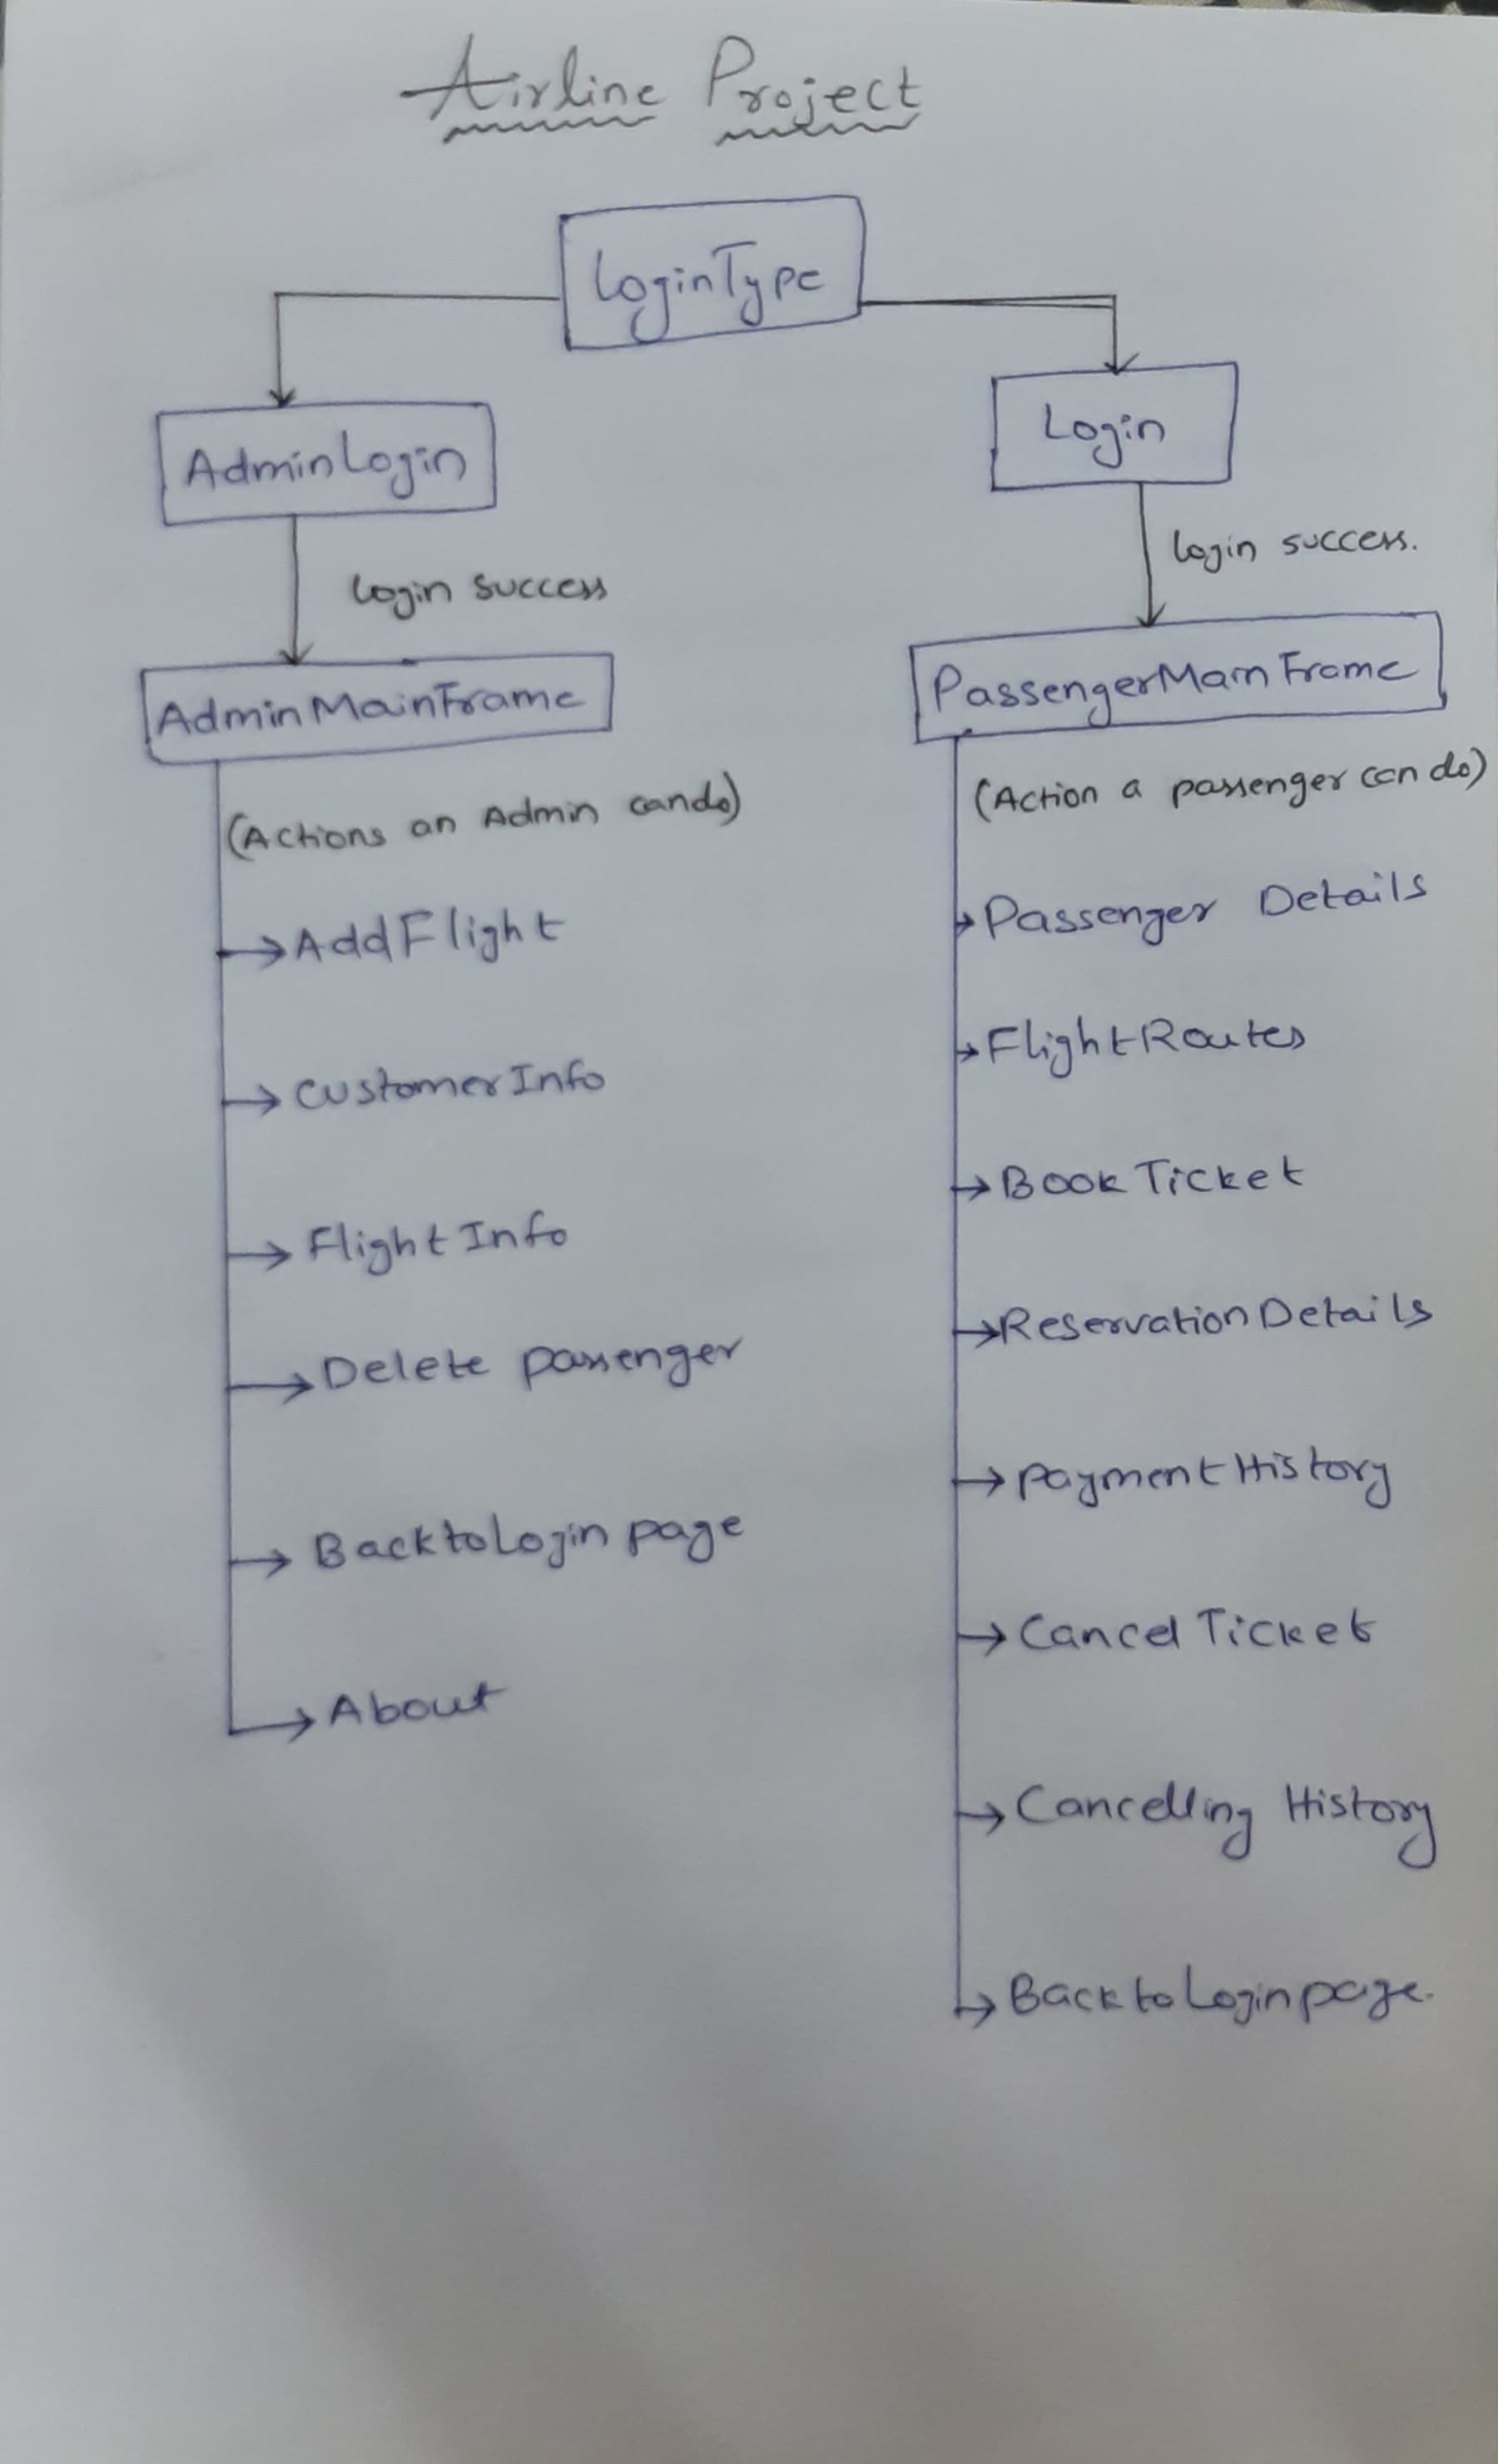 Airline Project
LoginType
AdminLogin
login success
AdminMainFrame
(Actions an Admin can do)
AddFlight
CustomerInfo
Flight Info
Delete passenger
BacktoLogin page
About
Login
login success.
PassengerMainFrame
(Action a passenger can do)
Passenger Details
FlightRoutes
Book Ticket
ReservationDetails
PaymentHistory
Cancel Ticket
Cancelling History
Back to Login page.